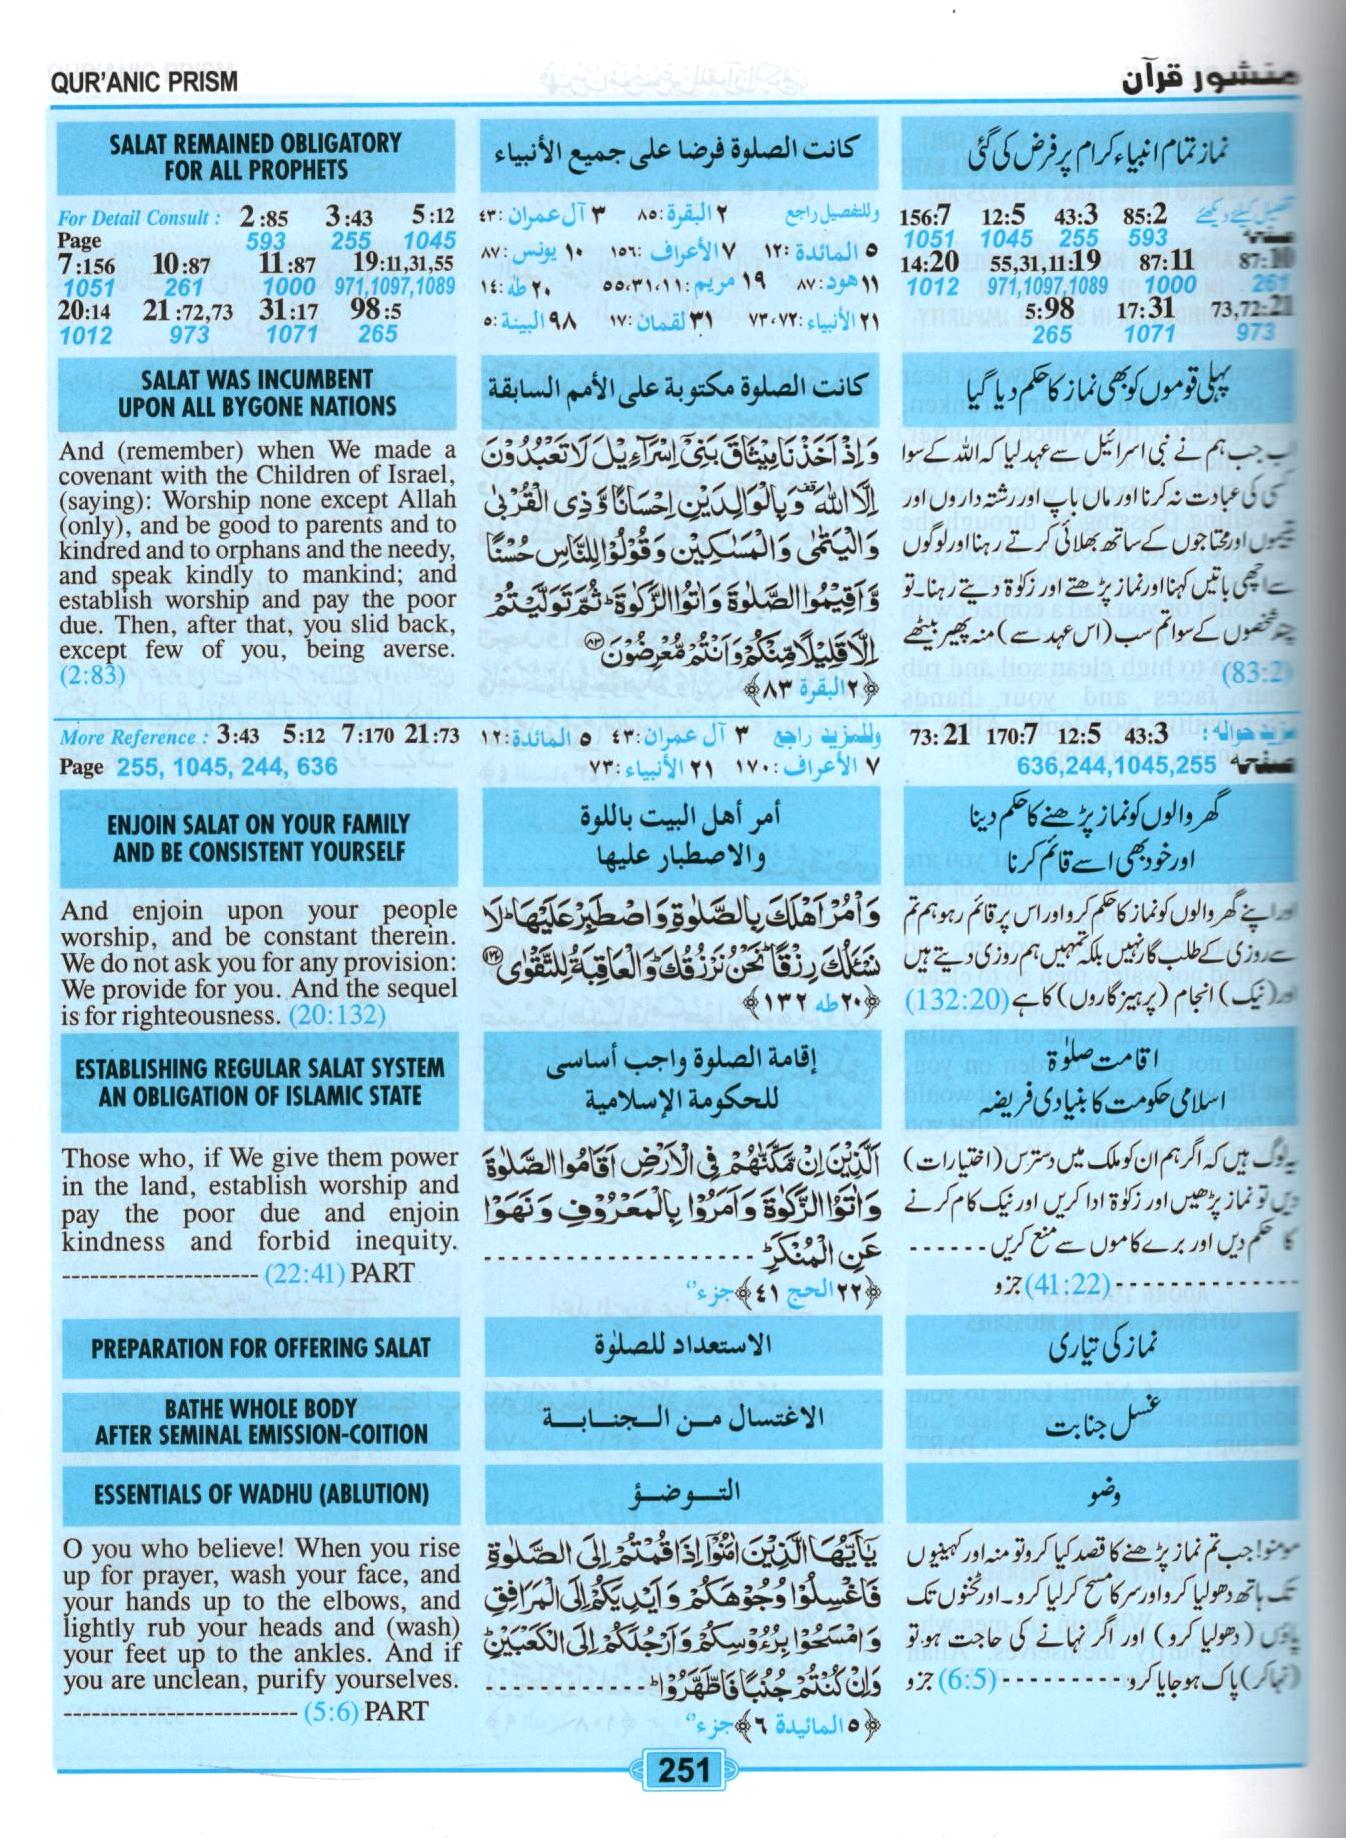 QUR'ANIC PRISM
منشور قرآن
SALAT REMAINED OBLIGATORY
FOR ALL PROPHETS
For Detail Consult : 2:85 3:43 5:12
Page 593 255 1045
7:156 10:87 11:87 19:11,31,55
1051 261 1000 971,1097,1089
20:14 21:72,73 31:17 98:5
1012 973 1071 265
كانت الصلوة فرضا على جميع الأنبياء
وللتفصيل راجع ٢ البقرة: ٨٥ ٣ آل عمران: ٤٣
٥ المائدة: ١٢ ٧ الأعراف: ١٥٦ ١٠ يونس: ٨٧
١١ هود: ٨٧ ١٩ مريم: ٥٥،٣١،١١ ٢٠ طه: ١٤
٢١ الأنبياء: ٧٣،٧٢ ٣١ لقمان: ١٧ ٩٨ البينة: ٥
نماز تمام انبیاء کرام پر فرض کی گئی
تفصیل کیلئے دیکھئے 85:2 43:3 12:5 156:7
صفحہ 593 255 1045 1051
87:10 87:11 55,31,11:19 14:20
261 1000 971,1097,1089 1012
73,72:21 17:31 5:98
973 1071 265
SALAT WAS INCUMBENT
UPON ALL BYGONE NATIONS
And (remember) when We made a
covenant with the Children of Israel,
(saying): Worship none except Allah
(only), and be good to parents and to
kindred and to orphans and the needy,
and speak kindly to mankind; and
establish worship and pay the poor
due. Then, after that, you slid back,
except few of you, being averse.
(2:83)
كانت الصلوة مكتوبة على الأمم السابقة
وَاِذْ اَخَذْنَا مِيْثَاقَ بَنِيْٓ اِسْرَآءِيْلَ لَا تَعْبُدُوْنَ
اِلَّا اللّٰهَ وَبِالْوَالِدَيْنِ اِحْسَانًا وَّذِي الْقُرْبٰى
وَالْيَتٰمٰى وَالْمَسٰكِيْنِ وَقُوْلُوْا لِلنَّاسِ حُسْنًا
وَّاَقِيْمُوا الصَّلٰوةَ وَاٰتُوا الزَّكٰوةَ ثُمَّ تَوَلَّيْتُمْ
اِلَّا قَلِيْلًا مِّنْكُمْ وَاَنْتُمْ مُّعْرِضُوْنَ ﴿٨٣﴾
﴿٢ البقرة ٨٣﴾
پہلی قوموں کو بھی نماز کا حکم دیا گیا
جب ہم نے بنی اسرائیل سے عہد لیا کہ اللہ کے سوا
کسی کی عبادت نہ کرنا اور ماں باپ اور رشتہ داروں اور
یتیموں اور محتاجوں کے ساتھ بھلائی کرتے رہنا اور لوگوں
سے اچھی باتیں کہنا اور نماز پڑھتے اور زکوٰۃ دیتے رہنا۔ تو
چند شخصوں کے سوا تم سب (اس عہد سے) منہ پھیر بیٹھے
(83:2)
More Reference : 3:43 5:12 7:170 21:73
Page 255, 1045, 244, 636
وللمزيد راجع ٣ آل عمران: ٤٣ ٥ المائدة: ١٢
٧ الأعراف: ١٧٠ ٢١ الأنبياء: ٧٣
مزید حوالہ : 43:3 12:5 170:7 73:21
صفحہ 636,244,1045,255
ENJOIN SALAT ON YOUR FAMILY
AND BE CONSISTENT YOURSELF
And enjoin upon your people
worship, and be constant therein.
We do not ask you for any provision:
We provide for you. And the sequel
is for righteousness. (20:132)
أمر أهل البيت باللوة
والاصطبار عليها
وَاْمُرْ اَهْلَكَ بِالصَّلٰوةِ وَاصْطَبِرْ عَلَيْهَا لَا
نَسْئَلُكَ رِزْقًا نَحْنُ نَرْزُقُكَ وَالْعَاقِبَةُ لِلتَّقْوٰى ﴿١٣٢﴾
﴿٢٠ طه ١٣٢﴾
گھر والوں کو نماز پڑھنے کا حکم دینا
اور خود بھی اسے قائم کرنا
اور اپنے گھر والوں کو نماز کا حکم کرو اور اس پر قائم رہو ہم تم
سے روزی کے طلب گار نہیں بلکہ تمہیں ہم روزی دیتے ہیں
اور (نیک) انجام (پرہیزگاروں) کا ہے (132:20)
ESTABLISHING REGULAR SALAT SYSTEM
AN OBLIGATION OF ISLAMIC STATE
Those who, if We give them power
in the land, establish worship and
pay the poor due and enjoin
kindness and forbid inequity.
-------------------- (22:41) PART
إقامة الصلوة واجب أساسى
للحكومة الإسلامية
اَلَّذِيْنَ اِنْ مَّكَّنّٰهُمْ فِي الْاَرْضِ اَقَامُوا الصَّلٰوةَ
وَاٰتَوُا الزَّكٰوةَ وَاَمَرُوْا بِالْمَعْرُوْفِ وَنَهَوْا
عَنِ الْمُنْكَرِ --------------------
﴿٢٢ الحج ٤١﴾ جزء
اقامت صلوٰۃ
اسلامی حکومت کا بنیادی فریضہ
یہ لوگ ہیں کہ اگر ہم ان کو ملک میں دسترس (اختیارات)
دیں تو نماز پڑھیں اور زکوٰۃ ادا کریں اور نیک کام کرنے
کا حکم دیں اور برے کاموں سے منع کریں ------
---------------- (41:22) جزو
PREPARATION FOR OFFERING SALAT
الاستعداد للصلوٰة
نماز کی تیاری
BATHE WHOLE BODY
AFTER SEMINAL EMISSION-COITION
الاغتسال من الجنابة
غسل جنابت
ESSENTIALS OF WADHU (ABLUTION)
O you who believe! When you rise
up for prayer, wash your face, and
your hands up to the elbows, and
lightly rub your heads and (wash)
your feet up to the ankles. And if
you are unclean, purify yourselves.
------------------------ (5:6) PART
التوضؤ
يٰٓاَيُّهَا الَّذِيْنَ اٰمَنُوْٓا اِذَا قُمْتُمْ اِلَى الصَّلٰوةِ
فَاغْسِلُوْا وُجُوْهَكُمْ وَاَيْدِيَكُمْ اِلَى الْمَرَافِقِ
وَامْسَحُوْا بِرُءُوْسِكُمْ وَاَرْجُلَكُمْ اِلَى الْكَعْبَيْنِ
وَاِنْ كُنْتُمْ جُنُبًا فَاطَّهَّرُوْا ----------------
﴿٥ المائيدة ٦﴾ جزء
وضو
مومنو! جب تم نماز پڑھنے کا قصد کیا کرو تو منہ اور کہنیوں
تک ہاتھ دھو لیا کرو اور سر کا مسح کر لیا کرو۔ اور ٹخنوں تک
پاؤں (دھو لیا کرو) اور اگر نہانے کی حاجت ہو تو
(نہا کر) پاک ہو جایا کرو ---------- (6:5) جزو
251